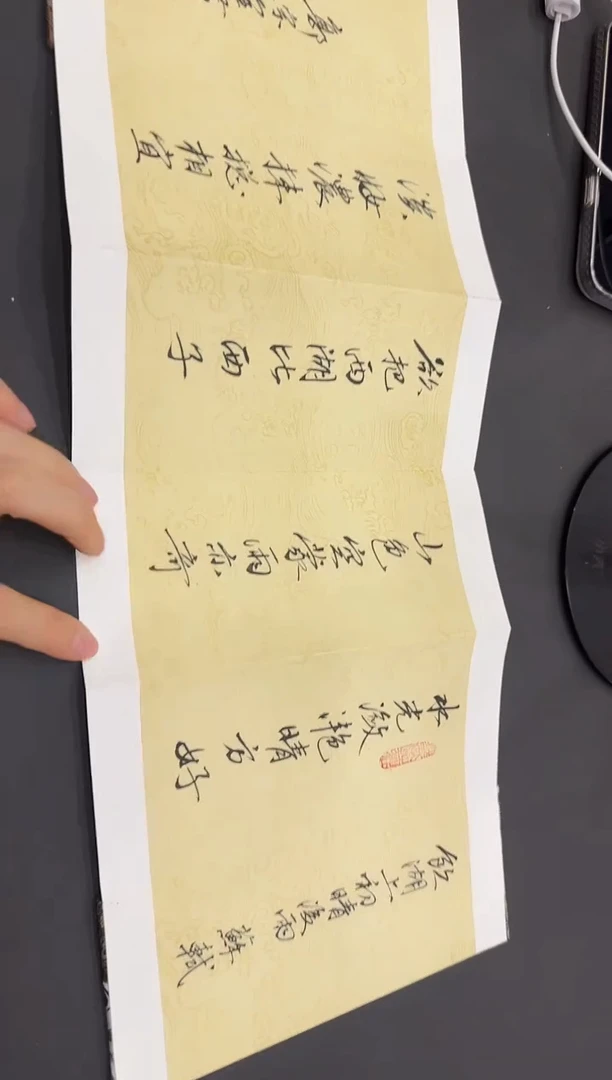 飲湖上初晴後雨 蘇軾
水光瀲灧晴方好
山色空蒙雨亦奇
欲把西湖比西子
淡妝濃抹總相宜